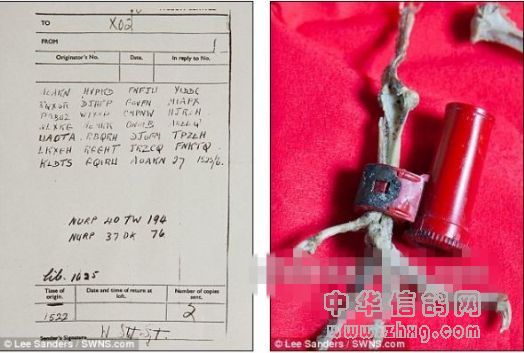 TO X02
FROM
Originator's No. Date. In reply to No.
AOAKN HVPKD FNFJU YIDDC
DJHFP GOVFN MIAPX
PABUZ WYYNP CMPNW HJRZH
NLXKG
UAOTA RBQRH DJOFM TPZEH
LKXGH RGGHT JRZCQ FNKTQ
KLDTS GQIRU AOAKN 27 1525/6.
NURP 40 TW 194
NURP 37 DK 76
lib. 1625
Time of origin. Date and time of return at loft. Number of copies sent.
1522 2
Sender's Signature
© Lee Sanders / SWNS.com
© Lee Sanders / SWNS.com
中华信鸽网
www.zhxg.com